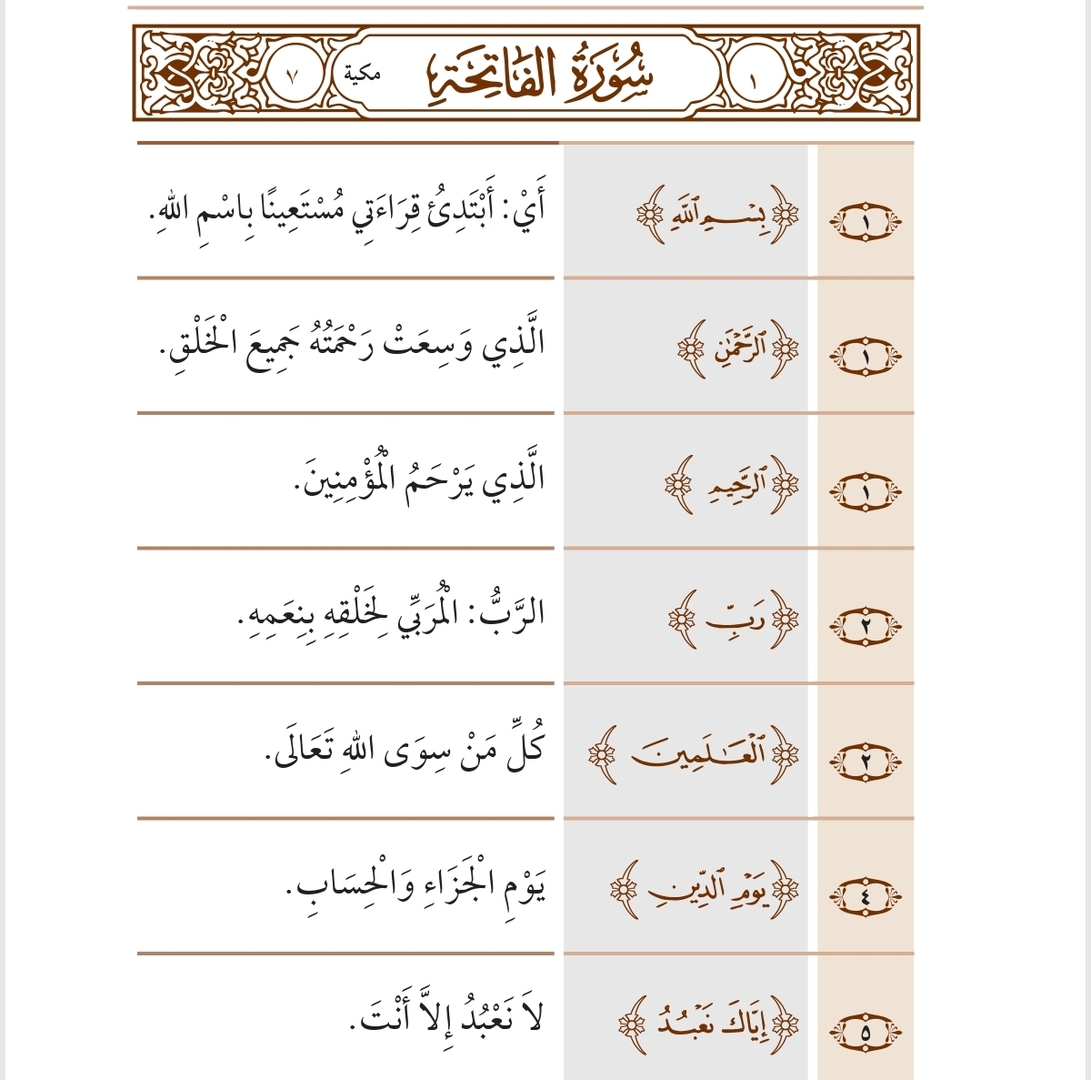 ١ سُورَةُ الفَاتِحَةِ مكية ٧
١ ﴿بِسْمِ ٱللَّهِ﴾ أَيْ: أَبْتَدِئُ قِرَاءَتِي مُسْتَعِينًا بِاسْمِ اللهِ.
١ ﴿ٱلرَّحْمَٰنِ﴾ الَّذِي وَسِعَتْ رَحْمَتُهُ جَمِيعَ الْخَلْقِ.
١ ﴿ٱلرَّحِيمِ﴾ الَّذِي يَرْحَمُ الْمُؤْمِنِينَ.
٢ ﴿رَبِّ﴾ الرَّبُّ: الْمُرَبِّي لِخَلْقِهِ بِنِعَمِهِ.
٢ ﴿ٱلْعَٰلَمِينَ﴾ كُلِّ مَنْ سِوَى اللهِ تَعَالَى.
٤ ﴿يَوْمِ ٱلدِّينِ﴾ يَوْمِ الْجَزَاءِ وَالْحِسَابِ.
٥ ﴿إِيَّاكَ نَعْبُدُ﴾ لاَ نَعْبُدُ إِلاَّ أَنْتَ.